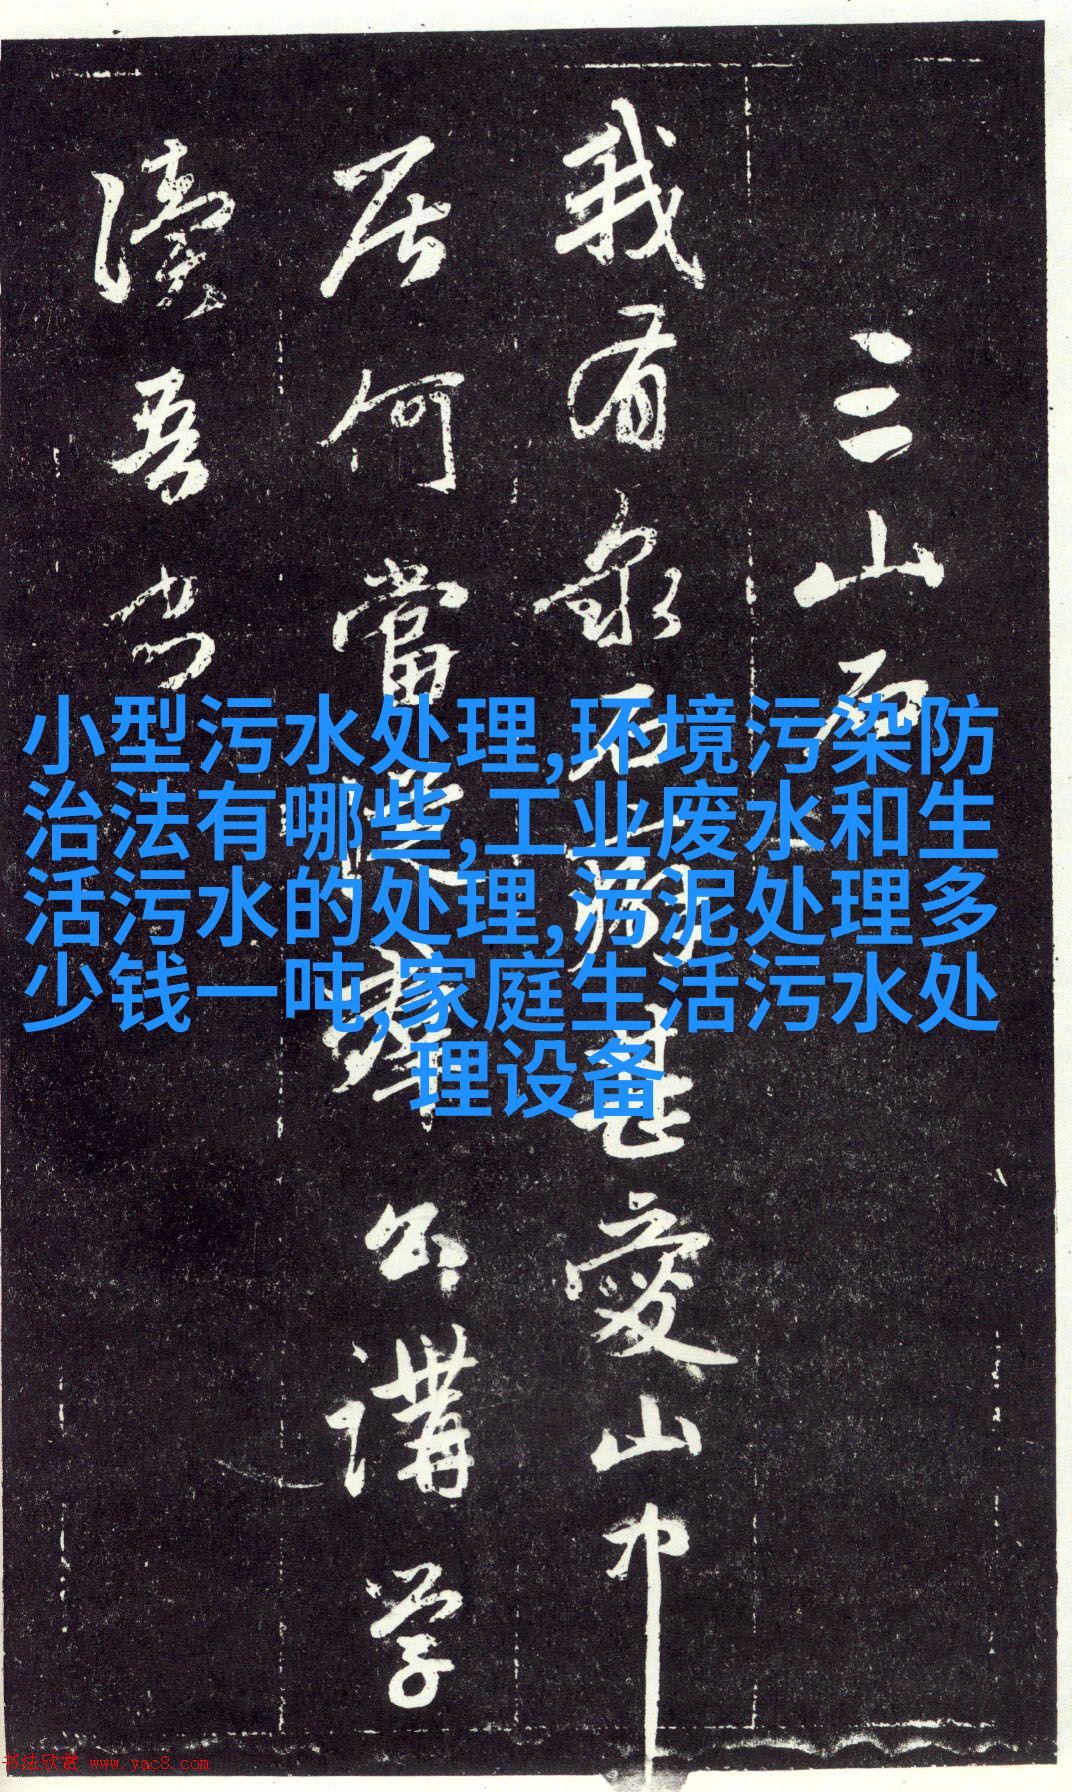 小型污水处理,环境污染防
治法有哪些,工业废水和生
活污水的处理,污泥处理多
少钱一吨,家庭生活污水处
理设备
三山石
我有泉石甚愛山中
居何當從群公講学
讀吾书
书法欣赏 www.yac8.com